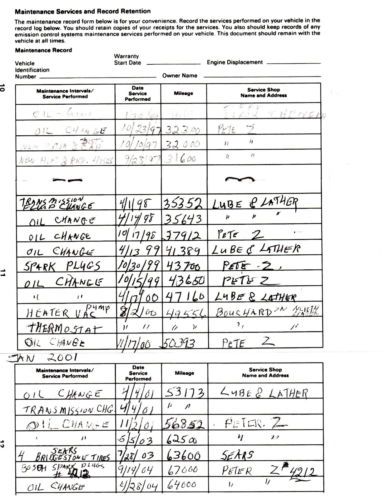 Maintenance Services and Record Retention
The maintenance record form below is for your convenience. Record the services performed on your vehicle in the
record log below. You should retain copies of your receipts for the services. You also should keep records of any
emission control systems maintenance services performed on your vehicle. This document should remain with the
vehicle at all times.
Maintenance Record
Vehicle Identification Number Warranty Start Date Engine Displacement
Owner Name
Maintenance Intervals/ Service Performed Date Service Performed Mileage Service Shop Name and Address
OIL
OIL CHANGE 10/23/97 32300 PETE Z
32000 " "
9/23/97 31600 "
TRANSMISSION FLUID CHANGE 4/1/98 35352 LUBE & LATHER
OIL CHANGE 4/17/98 35643 " "
OIL CHANGE 10/17/98 37912 PETE Z
OIL CHANGE 4/13 99 41389 LUBE & LATHER
SPARK PLUGS 10/30/99 43700 PETE-Z.
OIL CHANGE 10/15/99 43650 PETE Z
" " 4/17/00 47160 LUBE & LATHER
HEATER VAC PUMP 8/2/00 49556 BOUCHARD
THERMOSTAT " " " " " "
OIL CHANGE 11/17/00 50393 PETE Z
JAN 2001
Maintenance Intervals/ Service Performed Date Service Performed Mileage Service Shop Name and Address
OIL CHANGE 4/4/01 53173 LUBE & LATHER
TRANSMISSION CHG. 4/4/01 " "
OIL CHANGE 11/2/01 56852 PETER. Z
" " 5/5/03 62500 " "
4 SEARS BRIDGESTONE TIRES 7/28/03 63600 SEARS
BOSCH SPARK PLUGS # 4212 9/19/04 67000 PETER Z #4212
OIL CHANGE 4/28/04 64000 " "
10
11
12